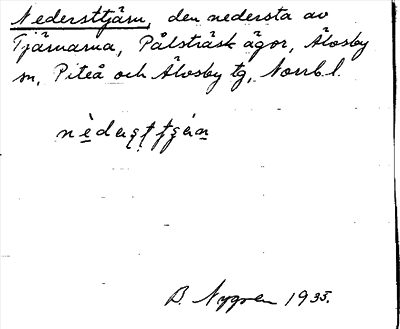 Nedersttjärn, den nedersta av
Tjärnarna, Pålsträsk ägor, Älvsby
sn, Piteå och Älvsby tg, Norrb. l.
B. Nygren 1935.